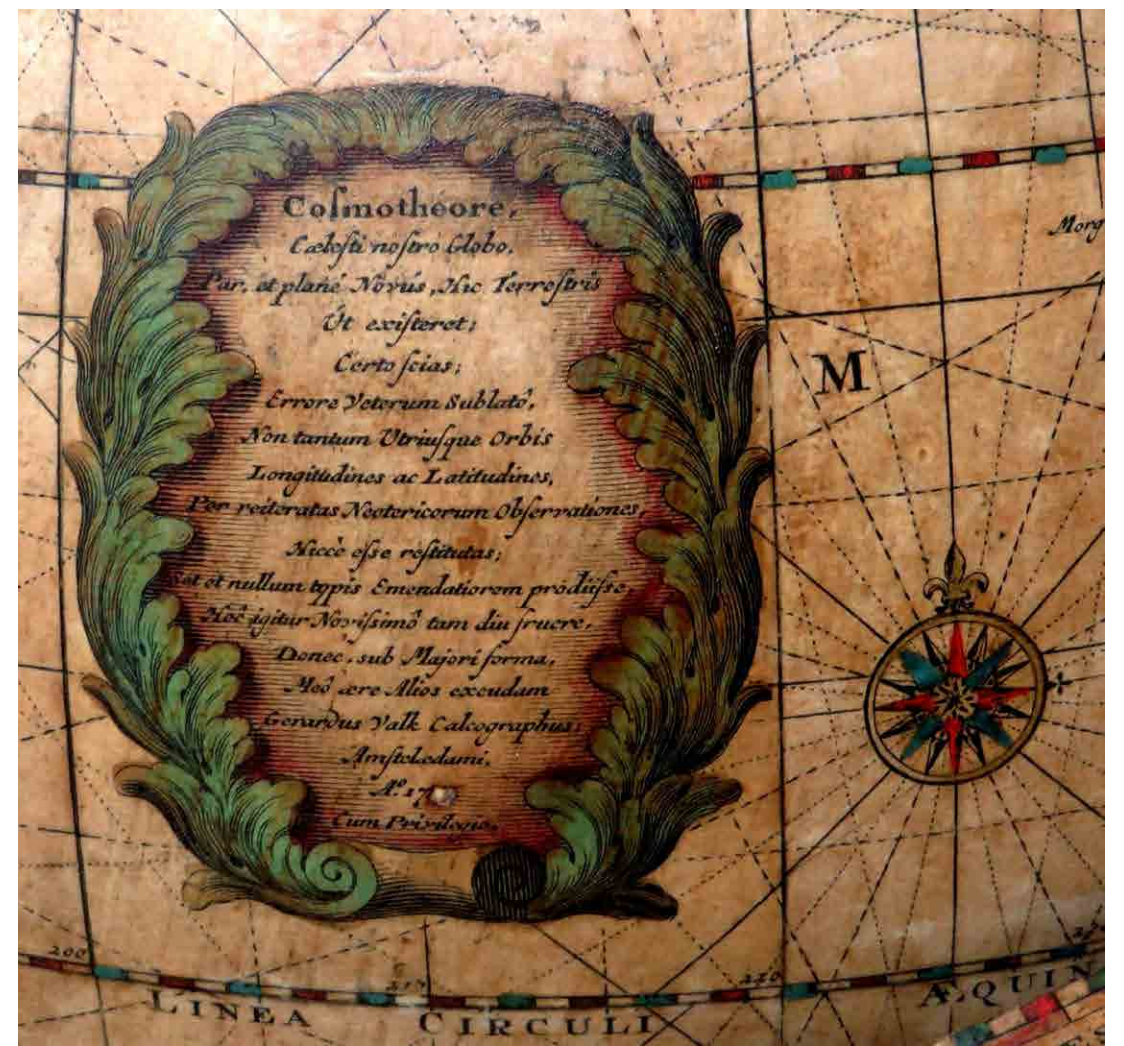 Coſmotheore,
Cæleſti noſtro Globo,
Par, et planè Novus, Hic Terreſtris
Ut exiſteret;
Certo ſcias;
Errore Veterum Sublatô,
Non tantum Utriuſque Orbis
Longitudines ac Latitudines,
Per reiteratas Neotericorum Obſervationes,
Hicce eſſe reſtitutas;
Set et nullum typis Emendatiorem prodiiſſe
Hôc igitur Noviſſimô tam diu fruere,
Donec, sub Majori forma,
Meô ære Alios excudam
Gerardus Valk Calcographus;
Amſtelædami,
Aº 17
Cum Privilegio.
Morg
M
200
210
220
LINEA CIRCULI ÆQUIN